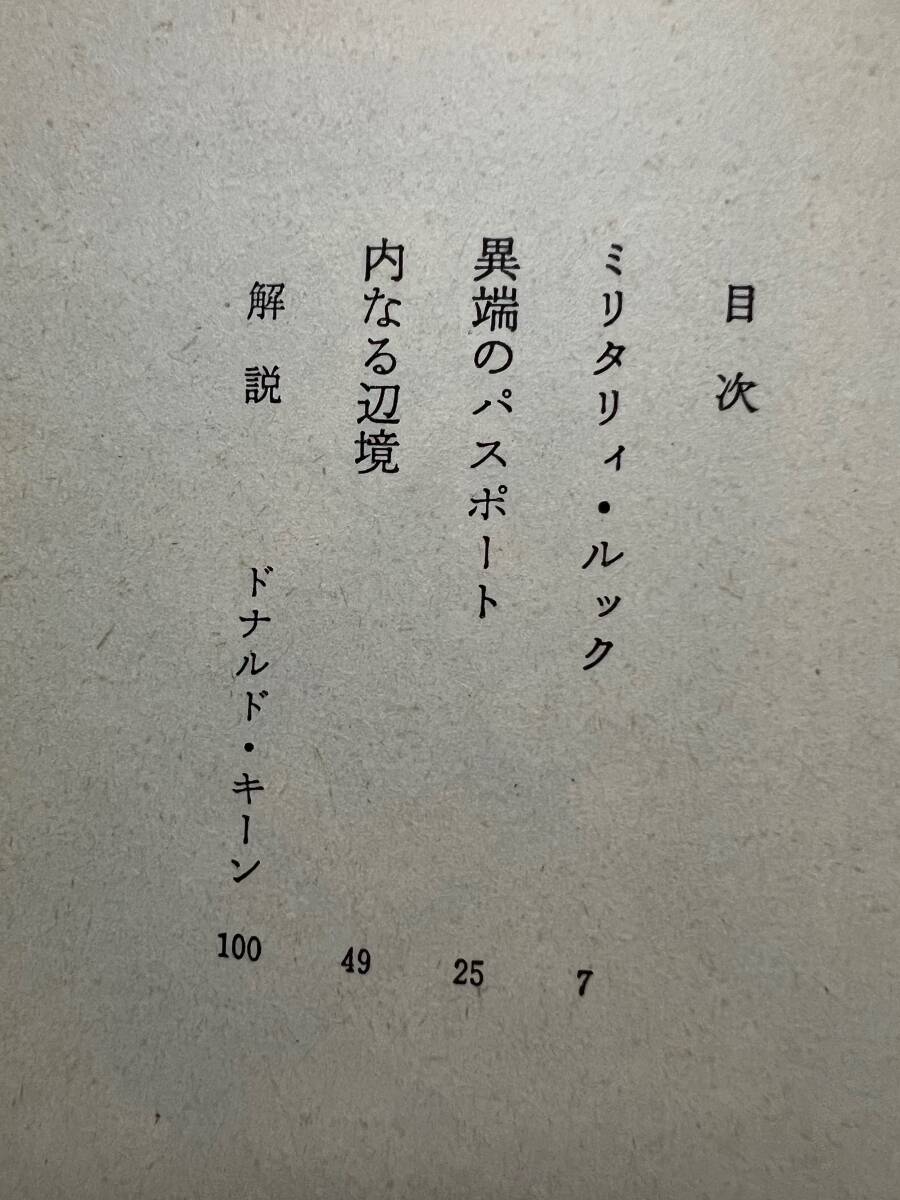 目次
ミリタリィ・ルック 7
異端のパスポート 25
内なる辺境 49
解説 ドナルド・キーン 100